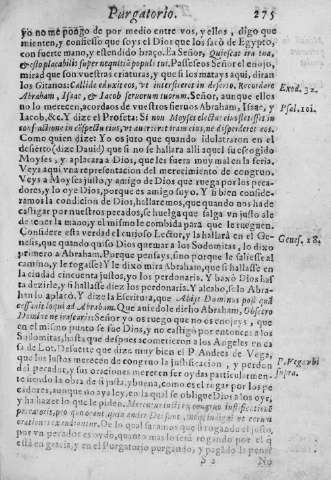 Purgatorio. 275
yo no me pongo de por medio entre vos, y ellos, digo que
mienten, y confiesso que soys el Dios que los sacò de Egypto,
con fuerte mano, y estendido braço. Ea Señor, Quiescat ira tua,
& esto placabilis super nequitia populi tui. Passeseos Señor el enojo,
mirad que son vuestras criaturas, y que si los matays aqui, diran
los Gitanos: Callidè eduxit eos, ut interficeret in deserto. Recordare
Abraham, Isaac, & Iacob servorum tuorum. Señor, aunque ellos
no lo merecen, acordaos de vuestros siervos Abraham, Isaac, y
Iacob, &c. Y dize el Profeta: Si non Moyses electus eius stetisset in
confractione in conspectu eius, ut averteret iram eius, ne disperderet eos.
Como quien dize: Yo os juro que quando idolatraron en el
desierto (dize David) que si no se hallara alli aquel su escogido
Moyses, y aplacara a Dios, que les fuera muy mal en la feria.
Veys aqui una representacion del merecimiento de congruo.
Veys a Moyses justo, y amigo de Dios que ruega por los peca-
dores, y lo oye Dios, porque es amigo suyo. Y si bien conside-
ramos la condicion de Dios, hallaremos, que quando nos ha de
castigar por nuestros pecados, se huelga que salga un justo a le
de tener la mano, y el mismo le combida para que le rueguen.
Considere esta verdad el curioso Lector, y la hallarà en el Ge-
nesis, que quando quiso Dios quemar a los Sodomitas, lo dixo
primero a Abraham, Porque pensays, sino porque le saliesse al
camino, y le rogasse? Y le dixo mira Abraham, que si hallasse en
la ciudad cincuenta justos, yo los perdonaria. Y baxò Dios hasta
dezirle, y si hallasse diez los perdonaria. Y al cabo, solo Abra-
han lo aplacò. Y dize la Escritura, que Abijt Dominus post quã
cessavit loqui ad Abraham. Que antes le dixo Abraham, Obsecro
Domine ne irascaris: Señor yo os ruego que no os enojeys, y que
en el mismo punto se fue Dios, y no castigò por entonces a los
Sodomitas, hasta que despues acometieron a los Angeles en ca
sa de Lot. De suerte que dize muy bien el P. Andres de Vega,
que los justos merecen de congruo la justificacion, y perdon
del pecador, y sus oraciones merecen ser oydas particularmen-
te siendo la obra de si justa, y buena, como es el rogar por los pe
cadores, aunque no aya ley, en la qual se obligue Dios a los oyr,
y ha hazer lo que le piden. Merentur iusti ex congruo iustificationẽ
De lo qual sacamos que si rogando el justo,
por un pecador es oydo, quanto mas lo serà rogando por el q̃
està en gracia, y en el Purgatorio purgando, y pagando la pena?
Exod. 32.
Psal. 101.
Genes. 18.
P. Vega ubi
supra.